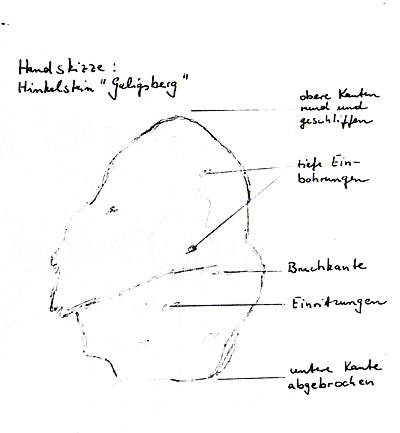 Handskizze:
Hinkelstein "Galigsberg"
obere Kanten
rund und
geschliffen
tiefe Ein-
bohrungen
Bruchkante
Einritzungen
untere Kante
abgebrochen